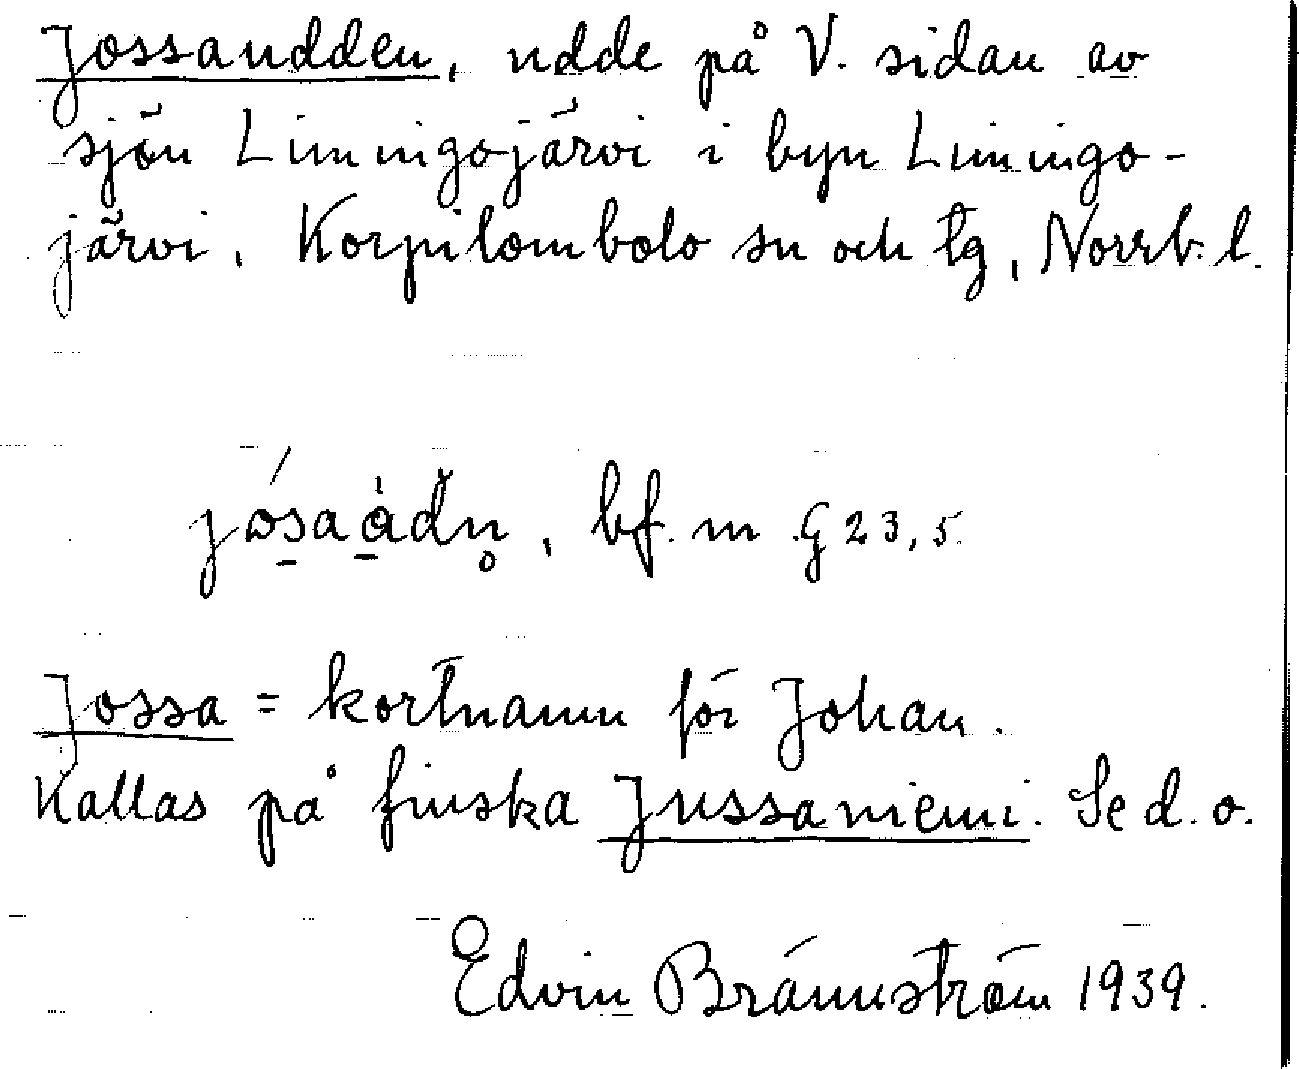 Jossaudden, udde på V. sidan av
sjön Limingojärvi i byn Limingo-
järvi, Korpilombolo sn och tg, Norrb. l.
bf. m G 23,5.
Jossa = kortnamn för Johan.
Kallas på finska Jussaniemi. Se d. o.
Edvin Brännström 1939.